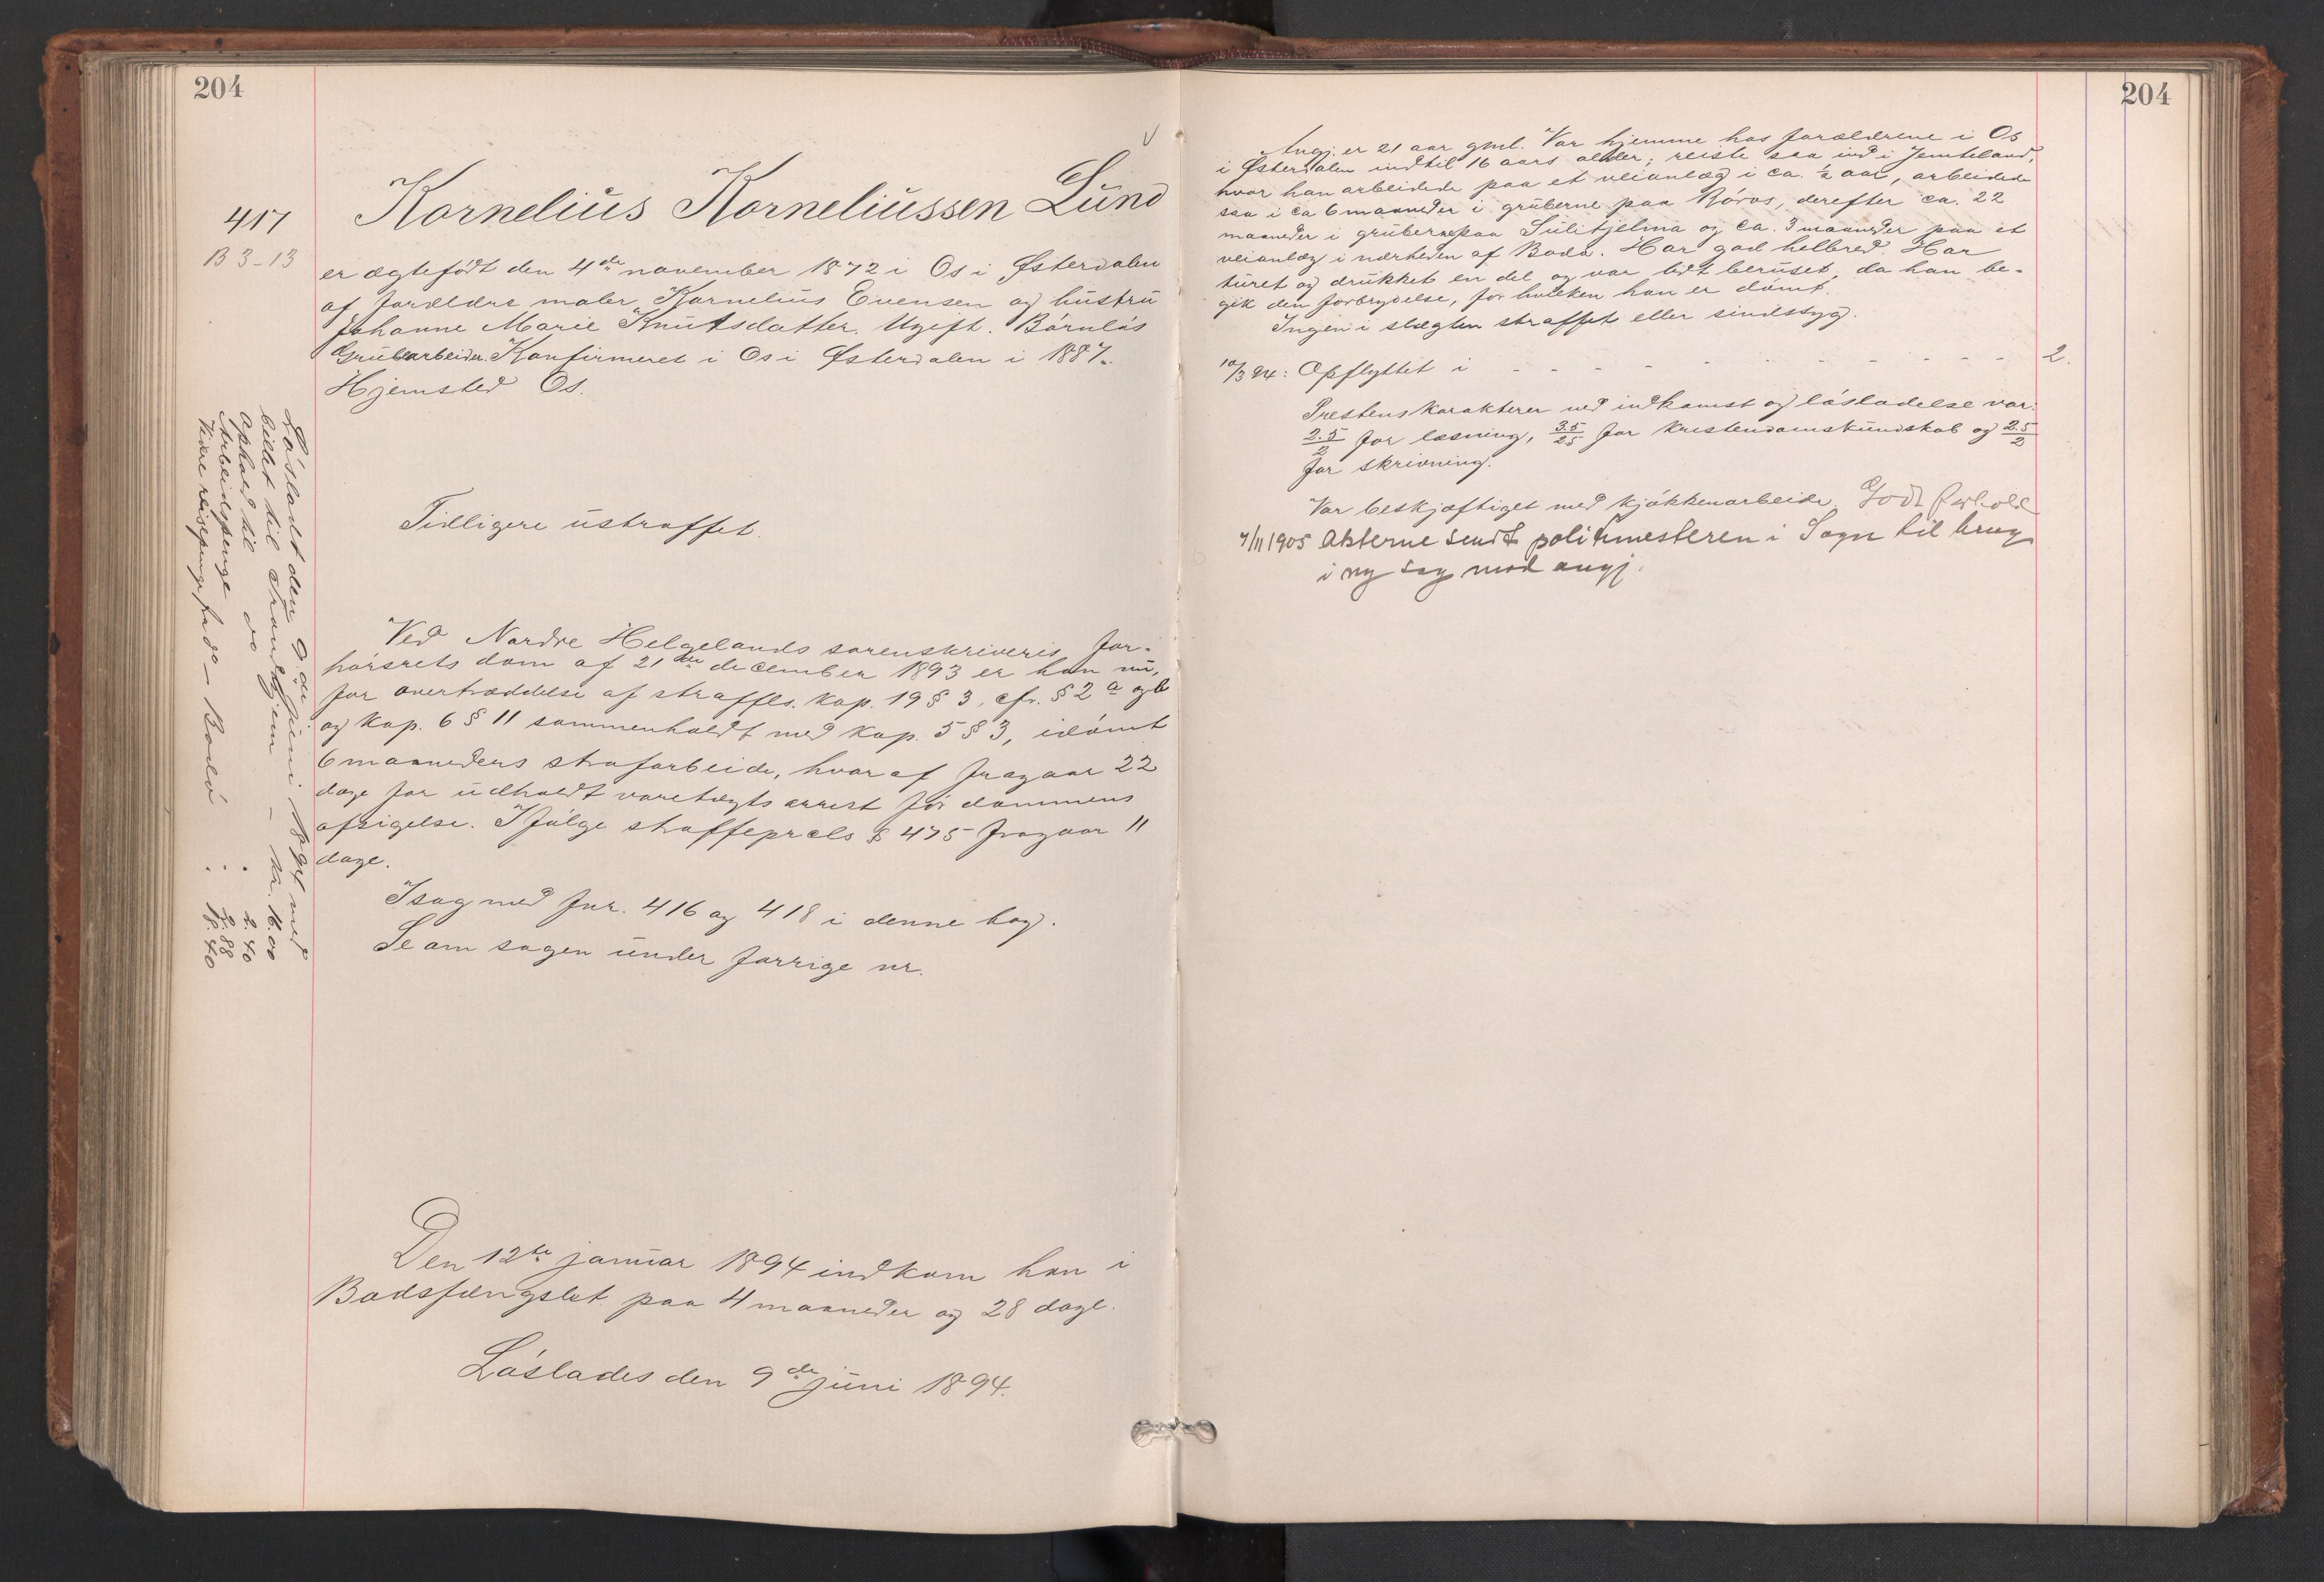 204
417
B 3-13
Kornelius Korneliussen Lund
er ægtefødt den 4de november 1872 i Os i Østerdalen
af forældre maler Kornelius Evensen og hustru
Johanne Marie Knutsdatter. Ugift. Børnløs
Grubearbeider. Konfirmeret i Os i Østerdalen i 1887.
Hjemsted Os.
Tidligere ustraffet.
Ved Nordre Helgelands sorenskriveris for-
hørsrets dom af 21de december 1893 er han nu,
for overtrædelse af straffels. kap. 19 § 3, cfr. § 2 a og b
og kap. 6 § 11 sammenholdt med kap. 5 § 3, idømt
6 maaneders strafarbeide, hvoraf fragaar 22
dage for udholdt varetægtsarrest før dommens
afsigelse. Ifølge straffeprcls § 475 fragaar 11
dage.
I sag med fnr. 416 og 418 i denne bog.
Se om sagen under forrige nr.
Den 12te januar 1894 indkom han i
Bodsfængslet paa 4 maaneder og 28 dage.
Løslades den 9de juni 1894.
Løsladt den 9de juni 1894 med
billet til Trondhjem – Kr. 16.00
Ophold til do . 2.40
Arbeidspenge : 2.88
Videre reisepenge fra do – Bodø . 18.40
204
Angj. er 21 aar gml. Var hjemme hos forældrene i Os
i Østerdalen indtil 16 aars alder; reiste saa ind i Jemteland,
hvor han arbeidede paa et veianlæg i ca. ½ aar, arbeidede
saa i ca 6 maaneder i gruberne paa Røros, derefter ca. 22
maaneder i gruberne paa Sulitjelma og ca. 3 maaneder paa et
veianlæg i nærheden af Bodø. Har god helbred. Har
turet og drukket en del og var lidt beruset, da han be-
gik den forbrydelse, for hvilken han er dømt.
Ingen i slægten straffet eller sindssyg.
10/3 94: Opflyttet i - - - - - - - - - - 2.
Prestens karakterer ved indkomst og løsladelse var:
2.5/2 for læsning, 3.5/2.5 for kristendomskundskab og 2.5/2
for skrivning.
Var beskjæftiget med kjøkkenarbeide. Godt forhold
7/11 1905 Akterne sendt politimesteren i Sogn til brug
i ny sag mod angj.